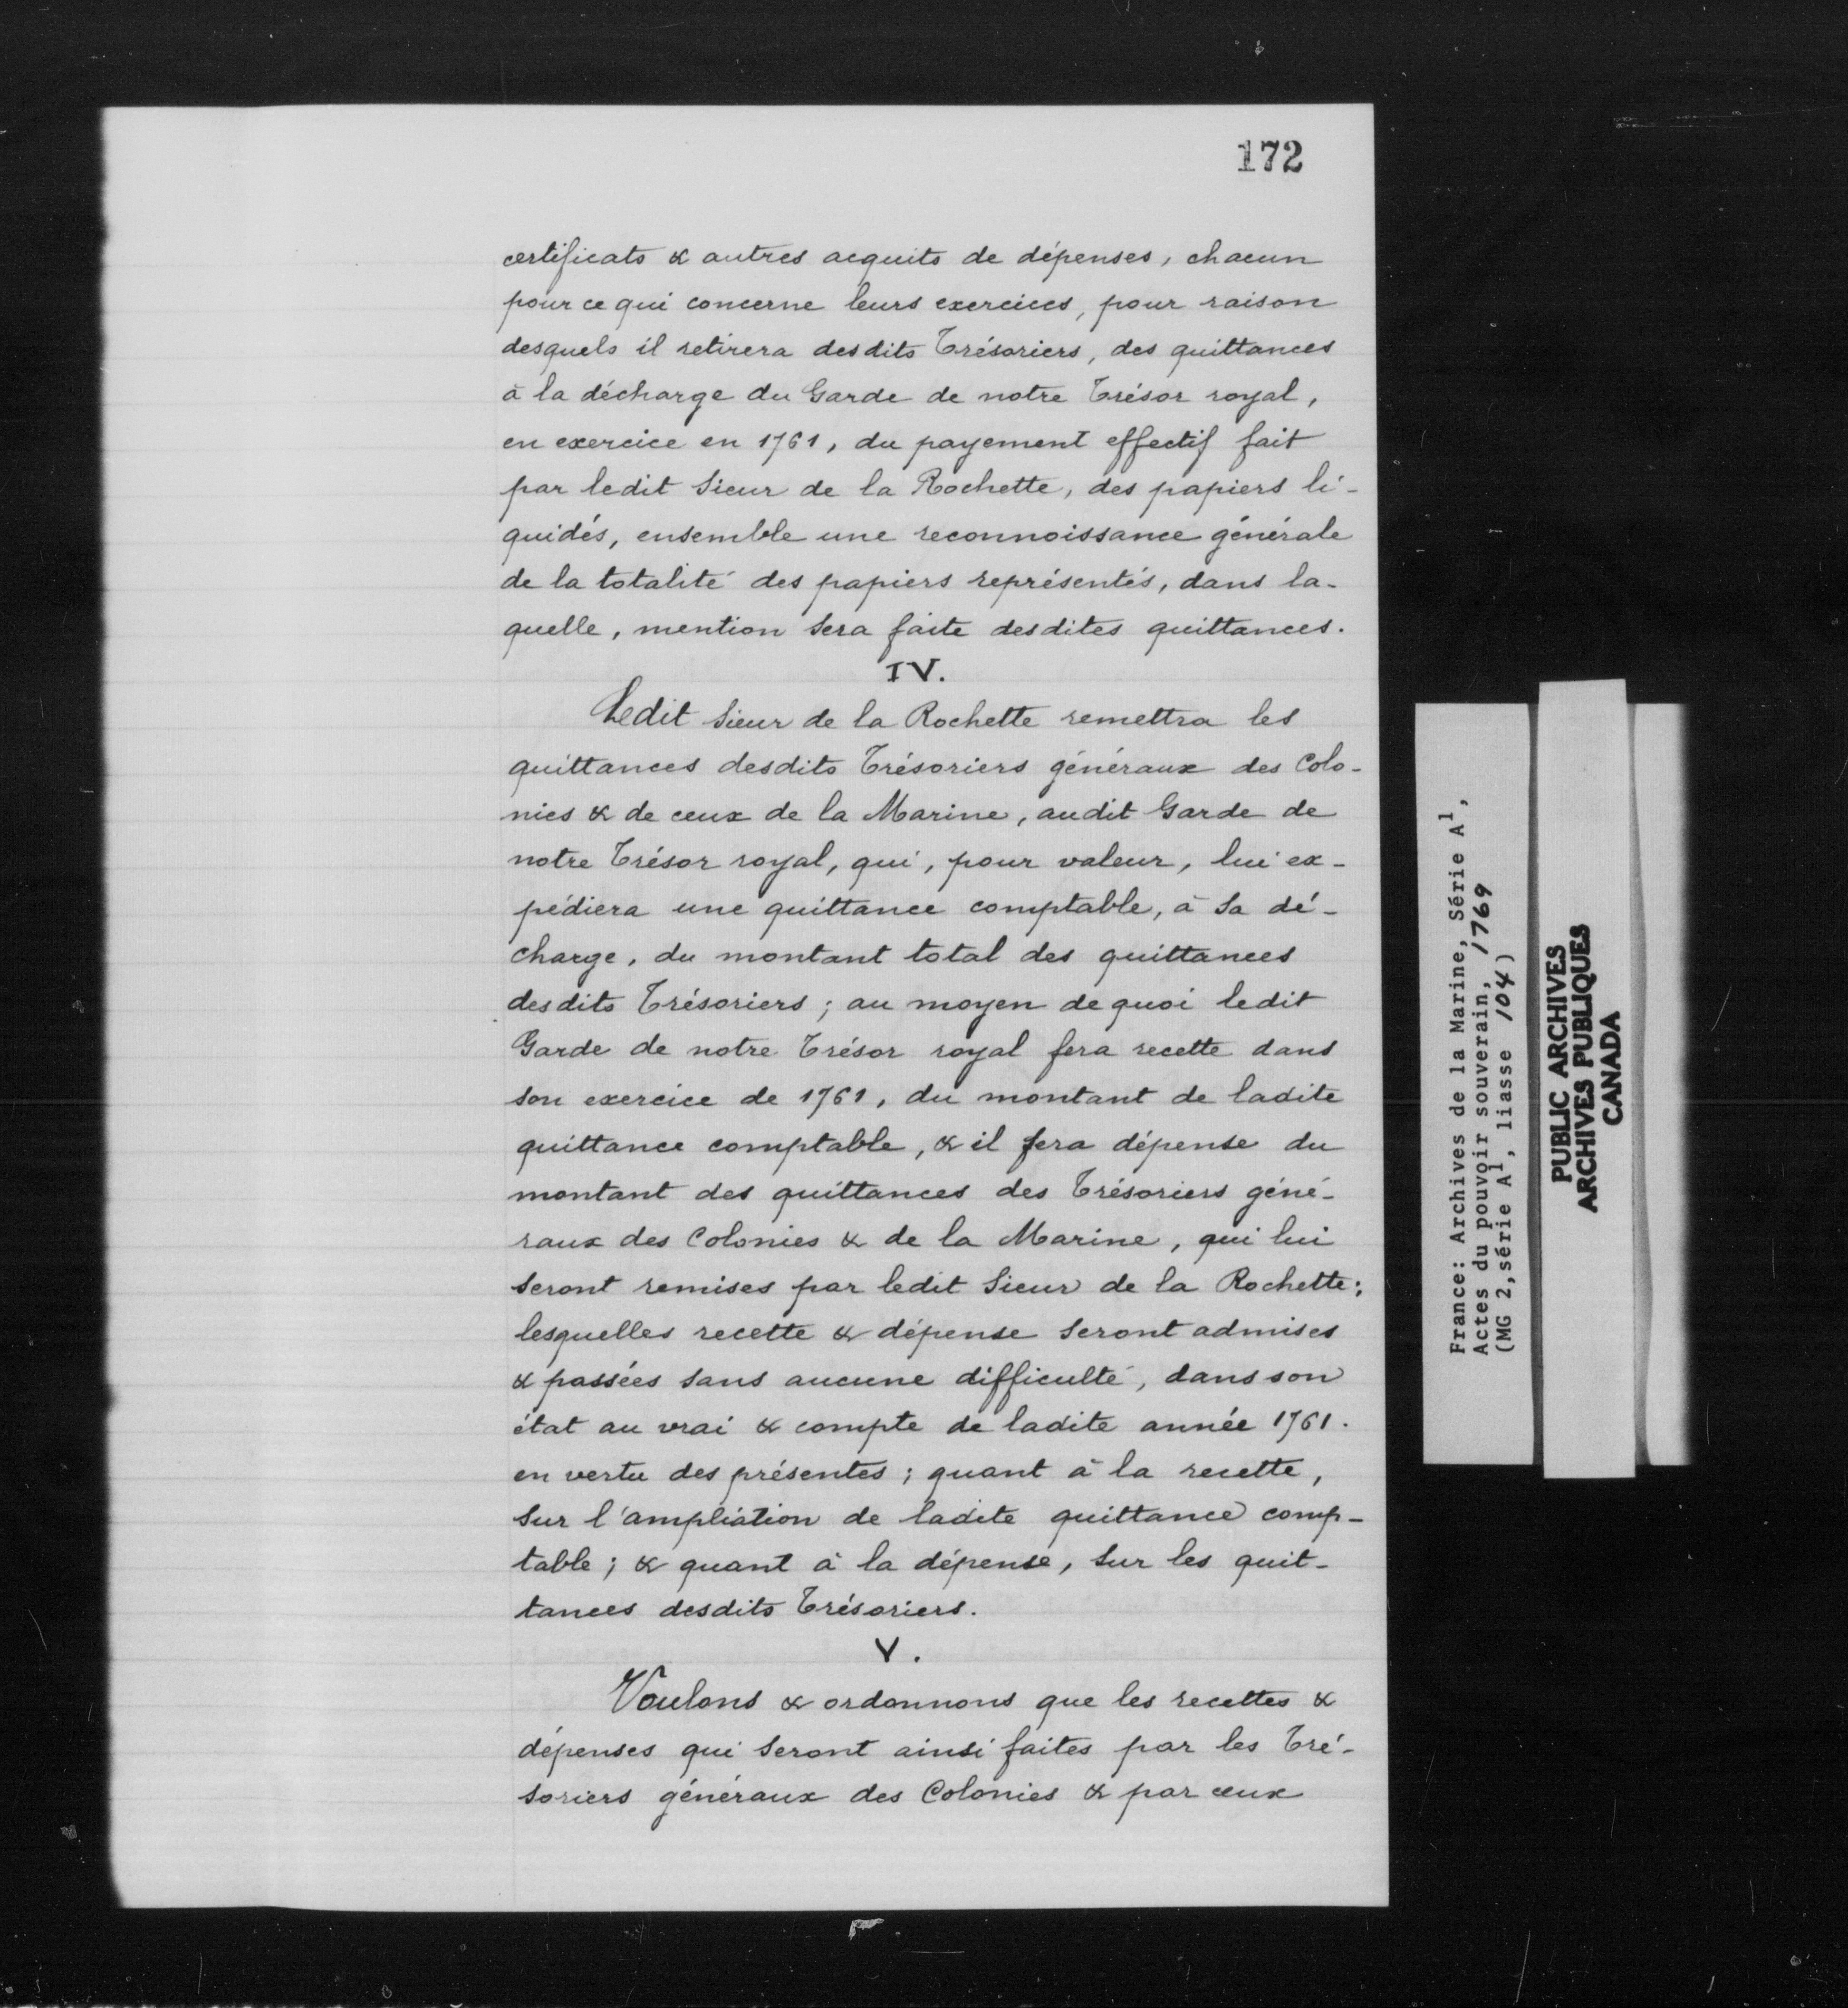 172
certificats & autres acquits de dépenses, chacun
pour ce qui concerne leurs exercices, pour raison
desquels il retirera desdits Trésoriers, des quittances
à la décharge du Garde de notre Trésor royal,
en exercice en 1761, du payement effectif fait
par ledit Sieur de la Rochette, des papiers li-
quidés, ensemble une reconnoissance générale
de la totalité des papiers représentés, dans la-
quelle, mention sera faite desdites quittances.
IV.
Ledit Sieur de la Rochette remettra les
quittances desdits Trésoriers généraux des Colo-
nies & de ceux de la Marine, audit Garde de
notre Trésor royal, qui, pour valeur, lui ex-
pédiera une quittance comptable, à sa dé-
charge, du montant total des quittances
desdits Trésoriers; au moyen de quoi ledit
Garde de notre Trésor royal fera recette dans
son exercice de 1761, du montant de ladite
quittance comptable, & il fera dépense du
montant des quittances des Trésoriers géné-
raux des Colonies & de la Marine, qui lui
seront remises par ledit Sieur de la Rochette:
lesquelles recette & dépense seront admises
& passées sans aucune difficulté, dans son
état au vrai & compte de ladite année 1761.
en vertu des présentes; quant à la recette,
sur l'ampliation de ladite quittance comp-
table; & quant à la dépense, sur les quit-
tances desdits Trésoriers.
V.
Voulons & ordonnons que les recettes &
dépenses qui seront ainsi faites par les Tré-
soriers généraux des Colonies & par ceux
France: Archives de la Marine, Série A1,
Actes du pouvoir souverain, 1769
(MG 2, série A1, liasse 104)
PUBLIC ARCHIVES
ARCHIVES PUBLIQUES
CANADA